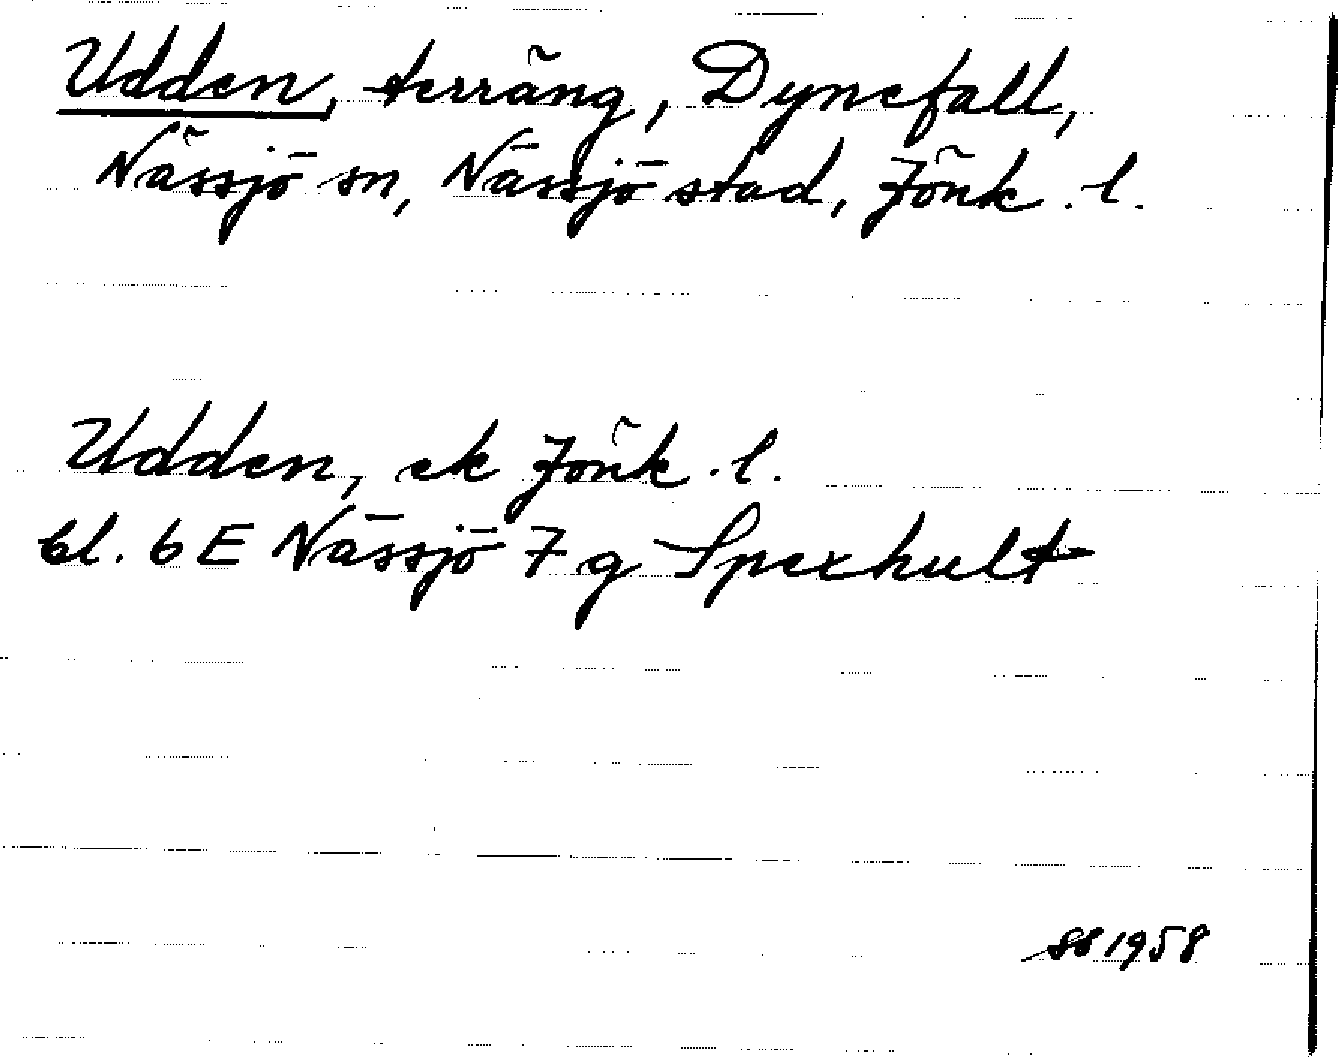 Udden, terräng, Dynefall,
Nässjö sn, Nässjö stad, Jönk. l.
Udden, ek Jönk. l.
bl. 6 E Nässjö 7 g Spexhult
SB 1958